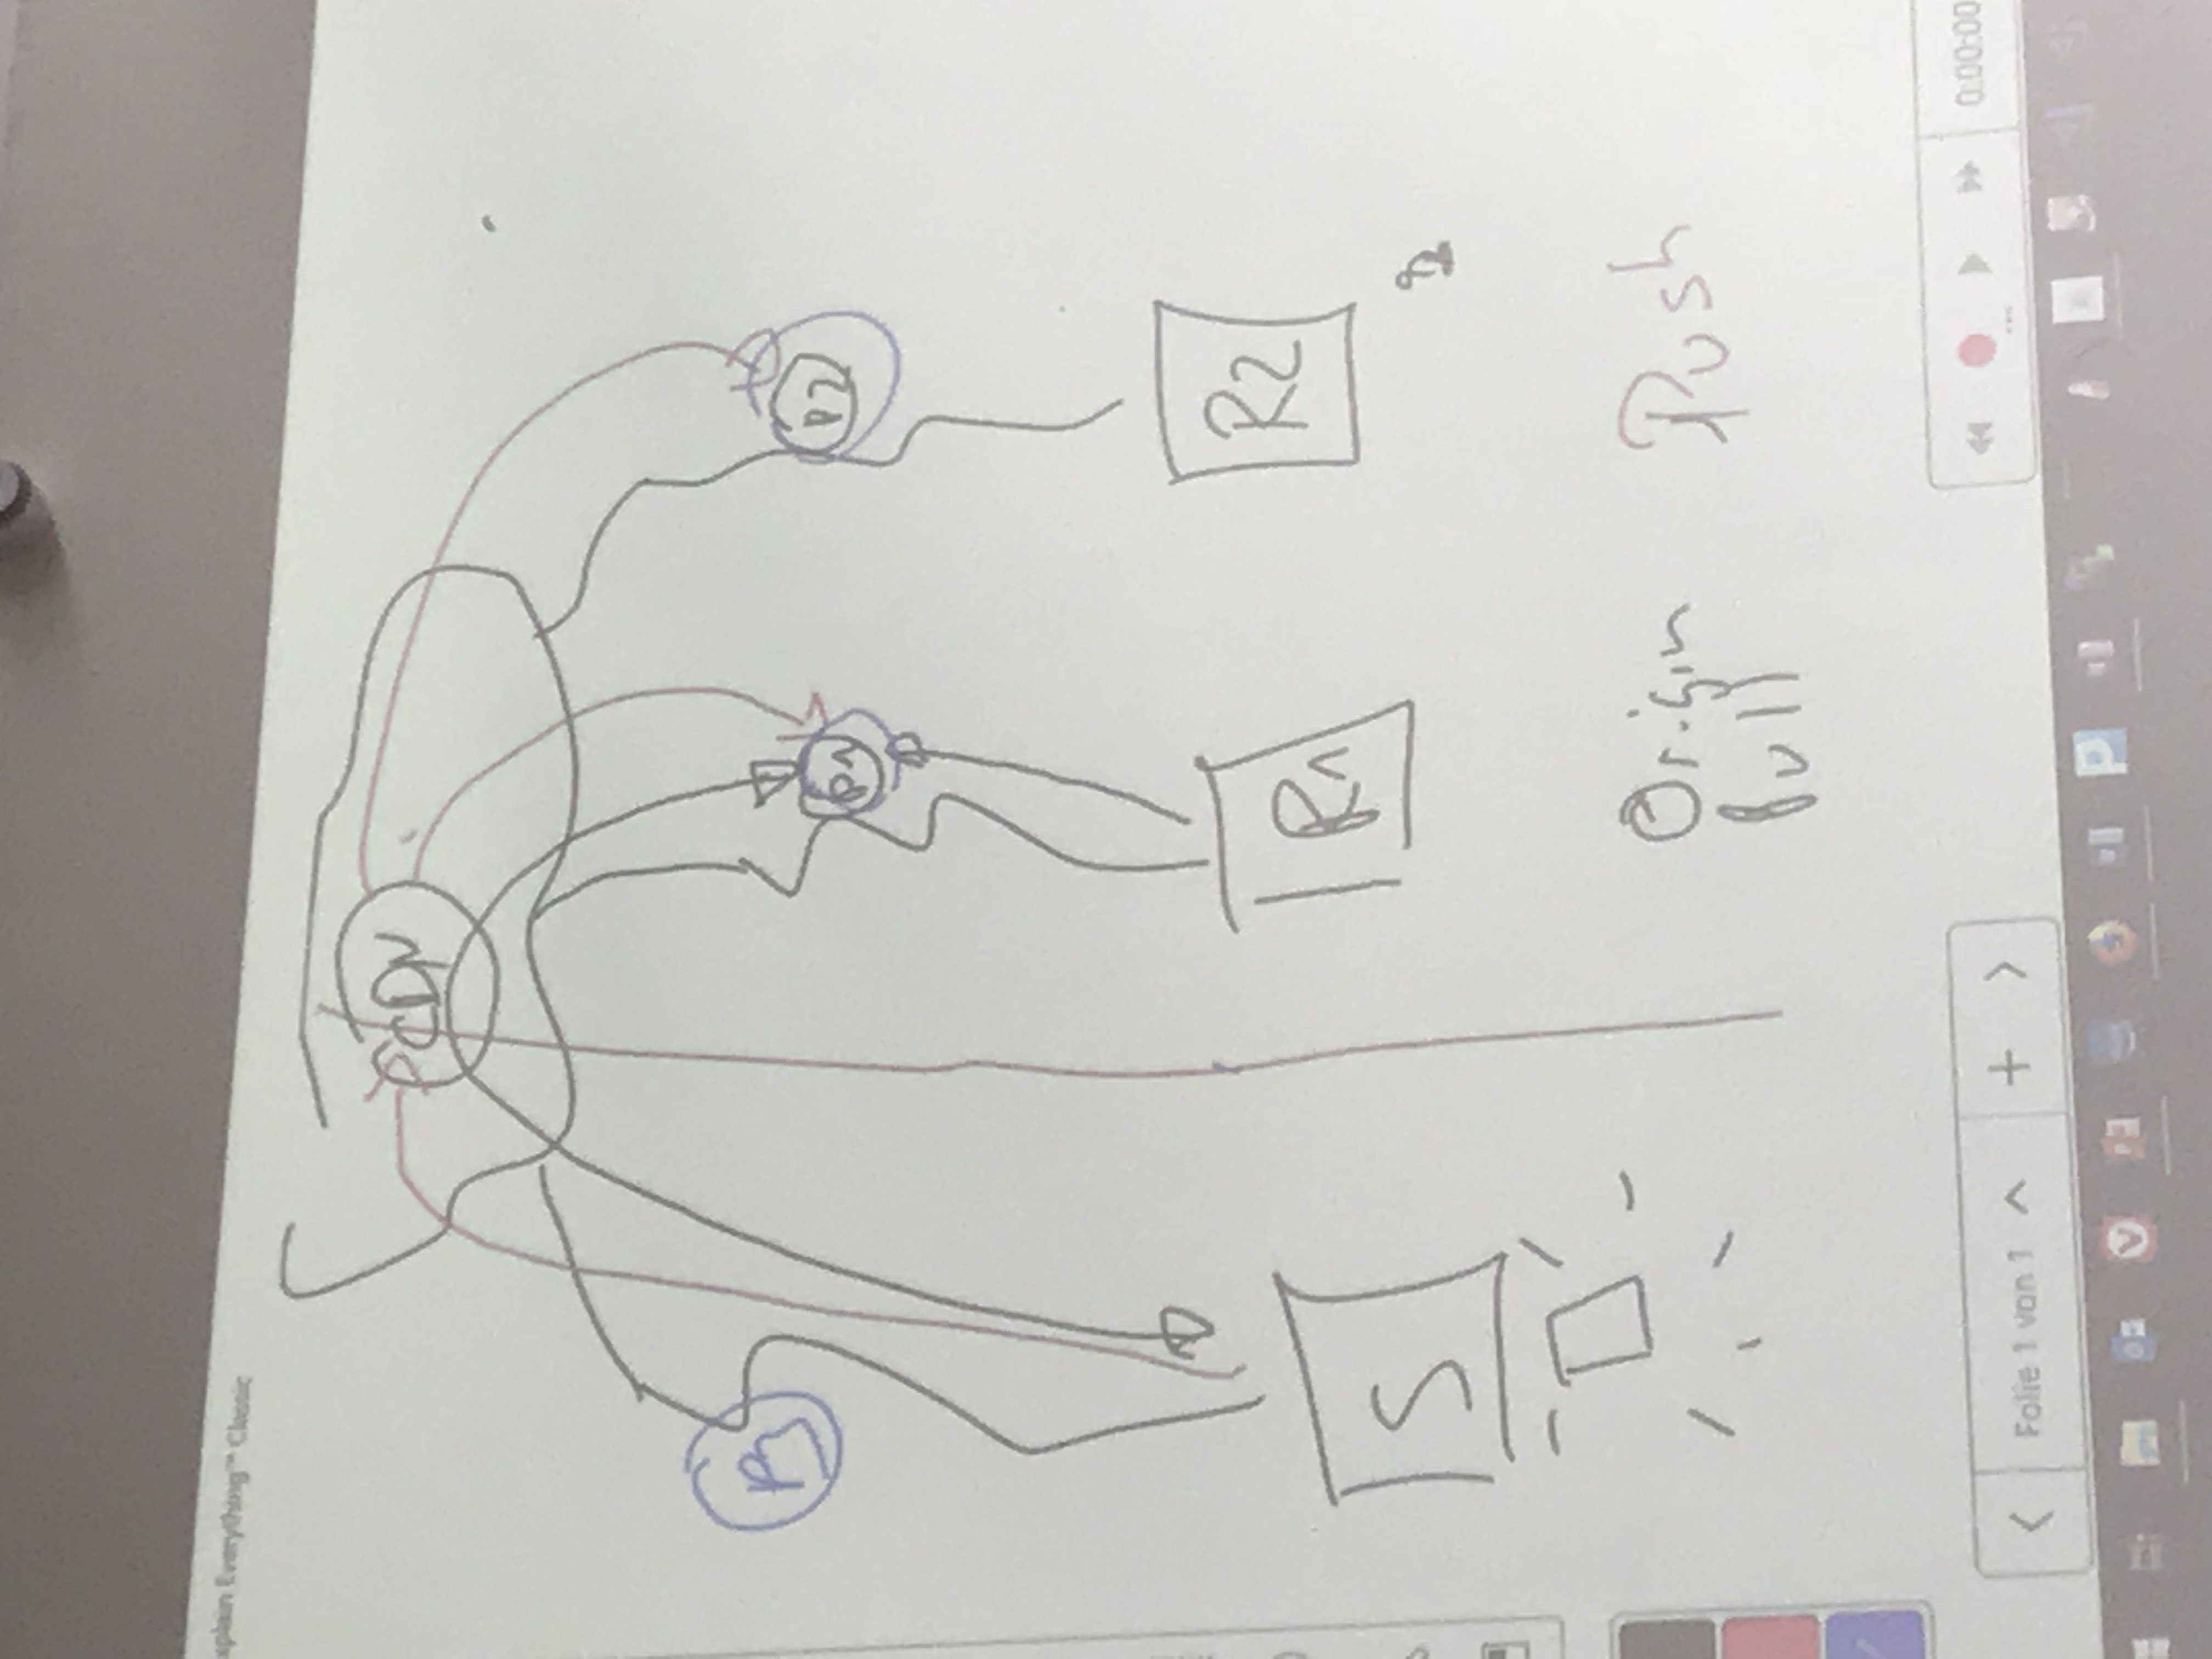 xplain Everything™ Classic
CDN
P3
P1
P2
R2
R1
S
2
Origin
Pull
Push
Folie 1 von 1
0:00:00